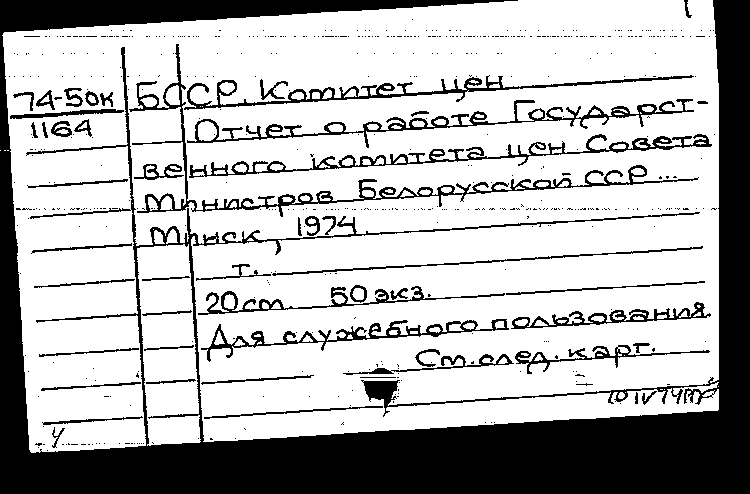 74-50к БССР. Комитет цен
1164 Отчет о работе Государст-
венного комитета цен Совета
Министров Белорусской ССР...
Минск, 1974.
т.
20 см. 50 экз.
Для служебного пользования.
См. след. карт.